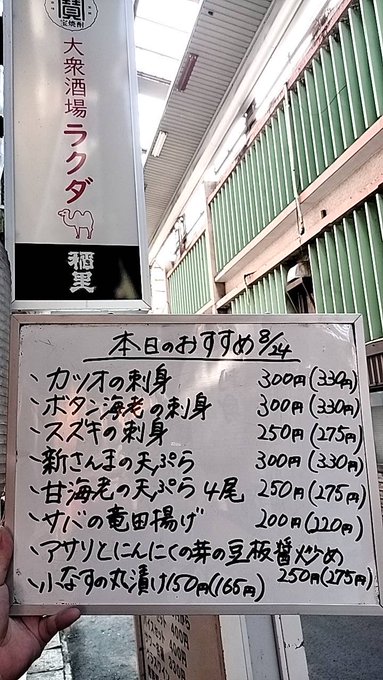 寶
宝焼酎
大衆酒場ラクダ
本日のおすすめ 8/24
、カツオの刺身 300円(330円)
、ボタン海老の刺身 300円(330円)
、スズキの刺身 250円(275円)
、新さんまの天ぷら 300円(330円)
、甘海老の天ぷら 4尾 250円(275円)
、サバの竜田揚げ 200円(220円)
、アサリとにんにくの芽の豆板醤炒め 250円(275円)
、小なすの丸漬け 150円(165円)